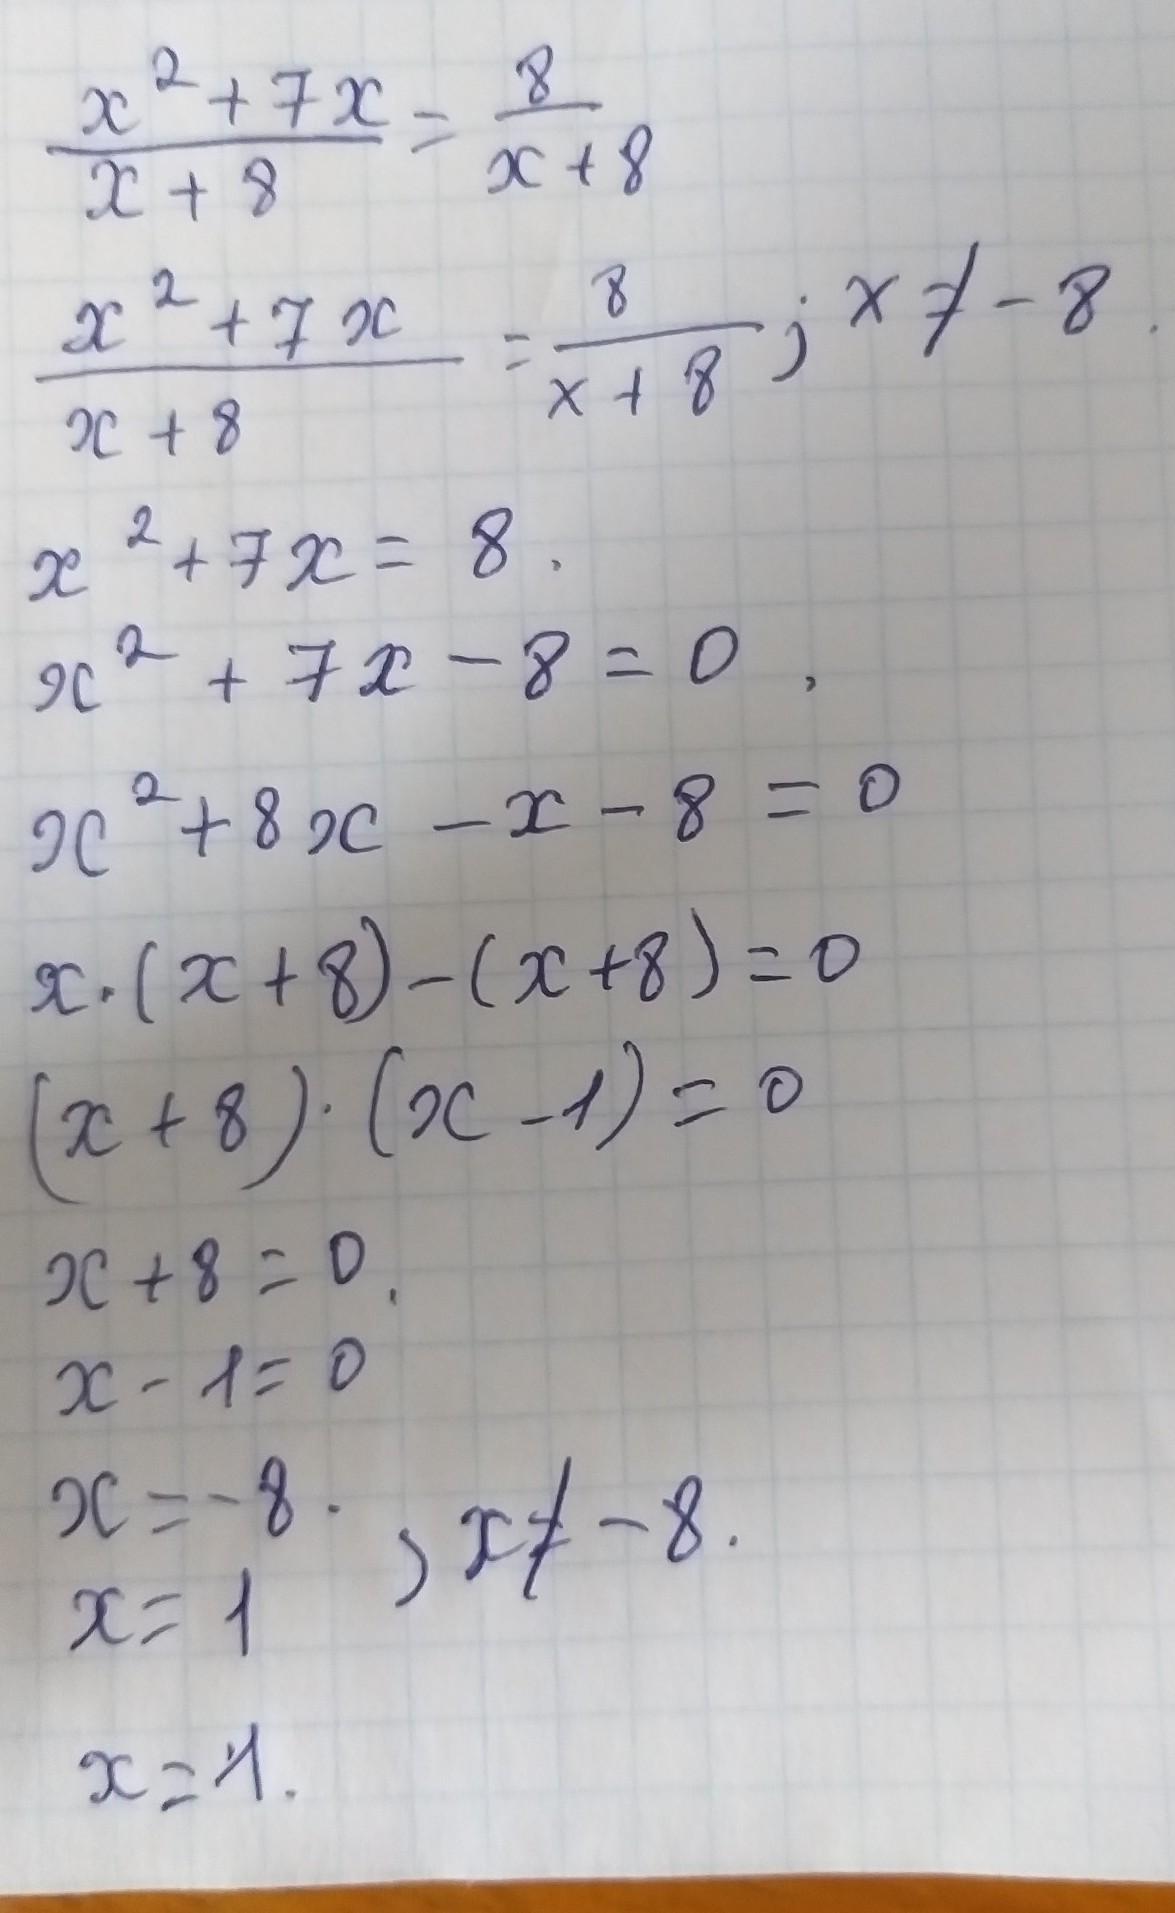 x² + 7x / x + 8 = 8 / x + 8
x² + 7x / x + 8 = 8 / x + 8 ; x ≠ - 8 .
x² + 7x = 8 .
x² + 7x - 8 = 0 ,
x² + 8x - x - 8 = 0
x · (x + 8) - (x + 8) = 0
(x + 8) · (x - 1) = 0
x + 8 = 0 .
x - 1 = 0
x = - 8 .
x = 1 , x ≠ - 8 .
x = 1 .